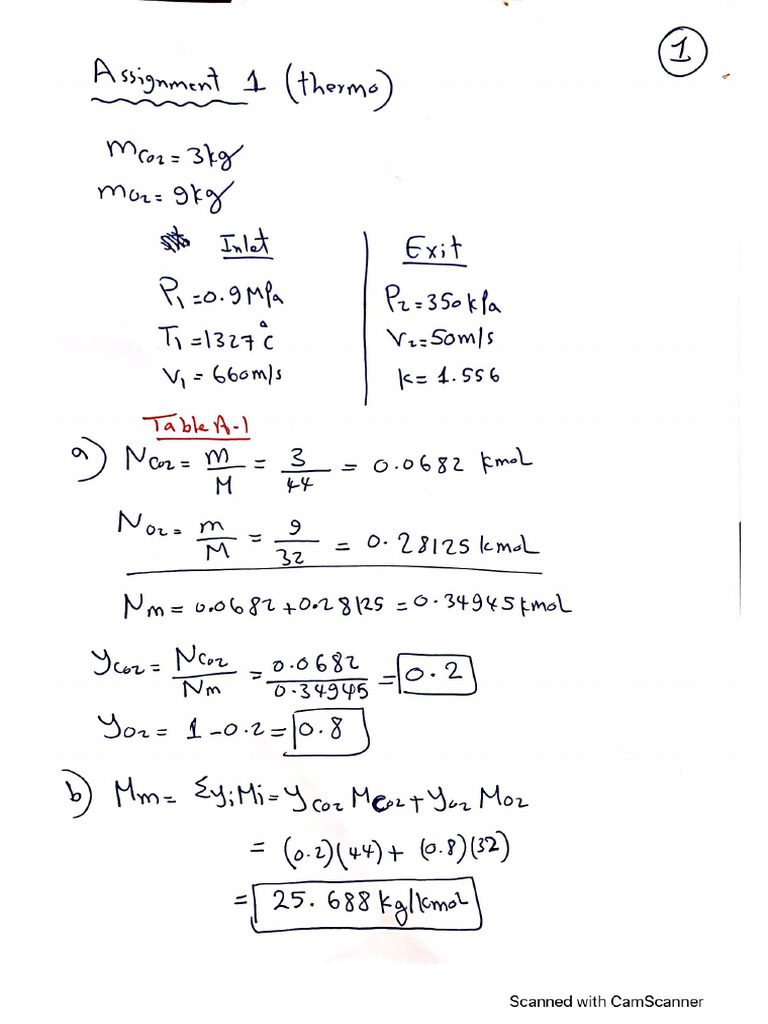 1
Assignment 1 (thermo)
mCO2 = 3kg
mO2 = 9kg
Inlet
P1 = 0.9 MPa
T1 = 1327 °C
V1 = 660 m/s
Exit
P2 = 350 kPa
V2 = 50 m/s
k = 1.556
Table A-1
a) NCO2 = m/M = 3/44 = 0.0682 kmol
NO2 = m/M = 9/32 = 0.28125 kmol
Nm = 0.0682 + 0.28125 = 0.34945 kmol
yCO2 = NCO2/Nm = 0.0682/0.34945 = 0.2
yO2 = 1 - 0.2 = 0.8
b) Mm = ΣyiMi = yCO2 MCO2 + yO2 MO2
= (0.2)(44) + (0.8)(32)
= 25.688 kg/kmol
Scanned with CamScanner